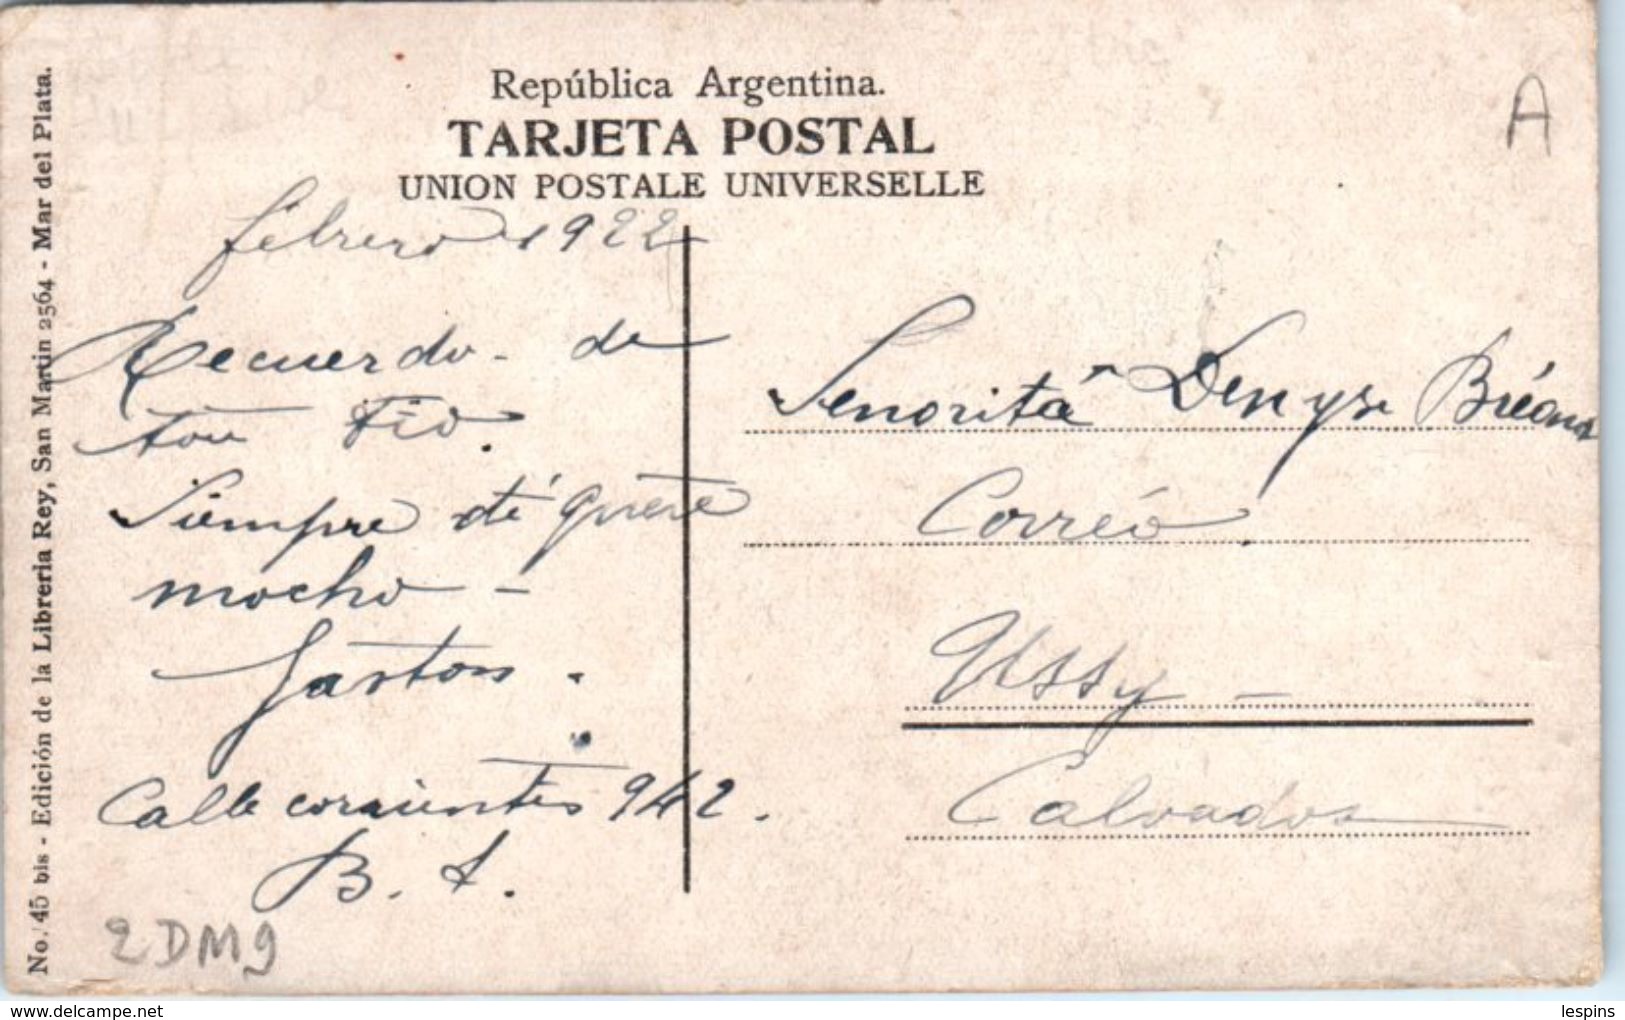 República Argentina.
TARJETA POSTAL
UNION POSTALE UNIVERSELLE
A
No. 45 bis - Edición de la Libreria Rey, San Martin 2564 - Mar del Plata.
febrero 1922
Recuerdo - de
ton Tio.
Siempre té quere
mocho -
Gaston.
Calle corrientes 942.
B. A.
2DM9
Senorita Denyse
Correo.
Ussy -
Calvados
delcampe.net
lespins